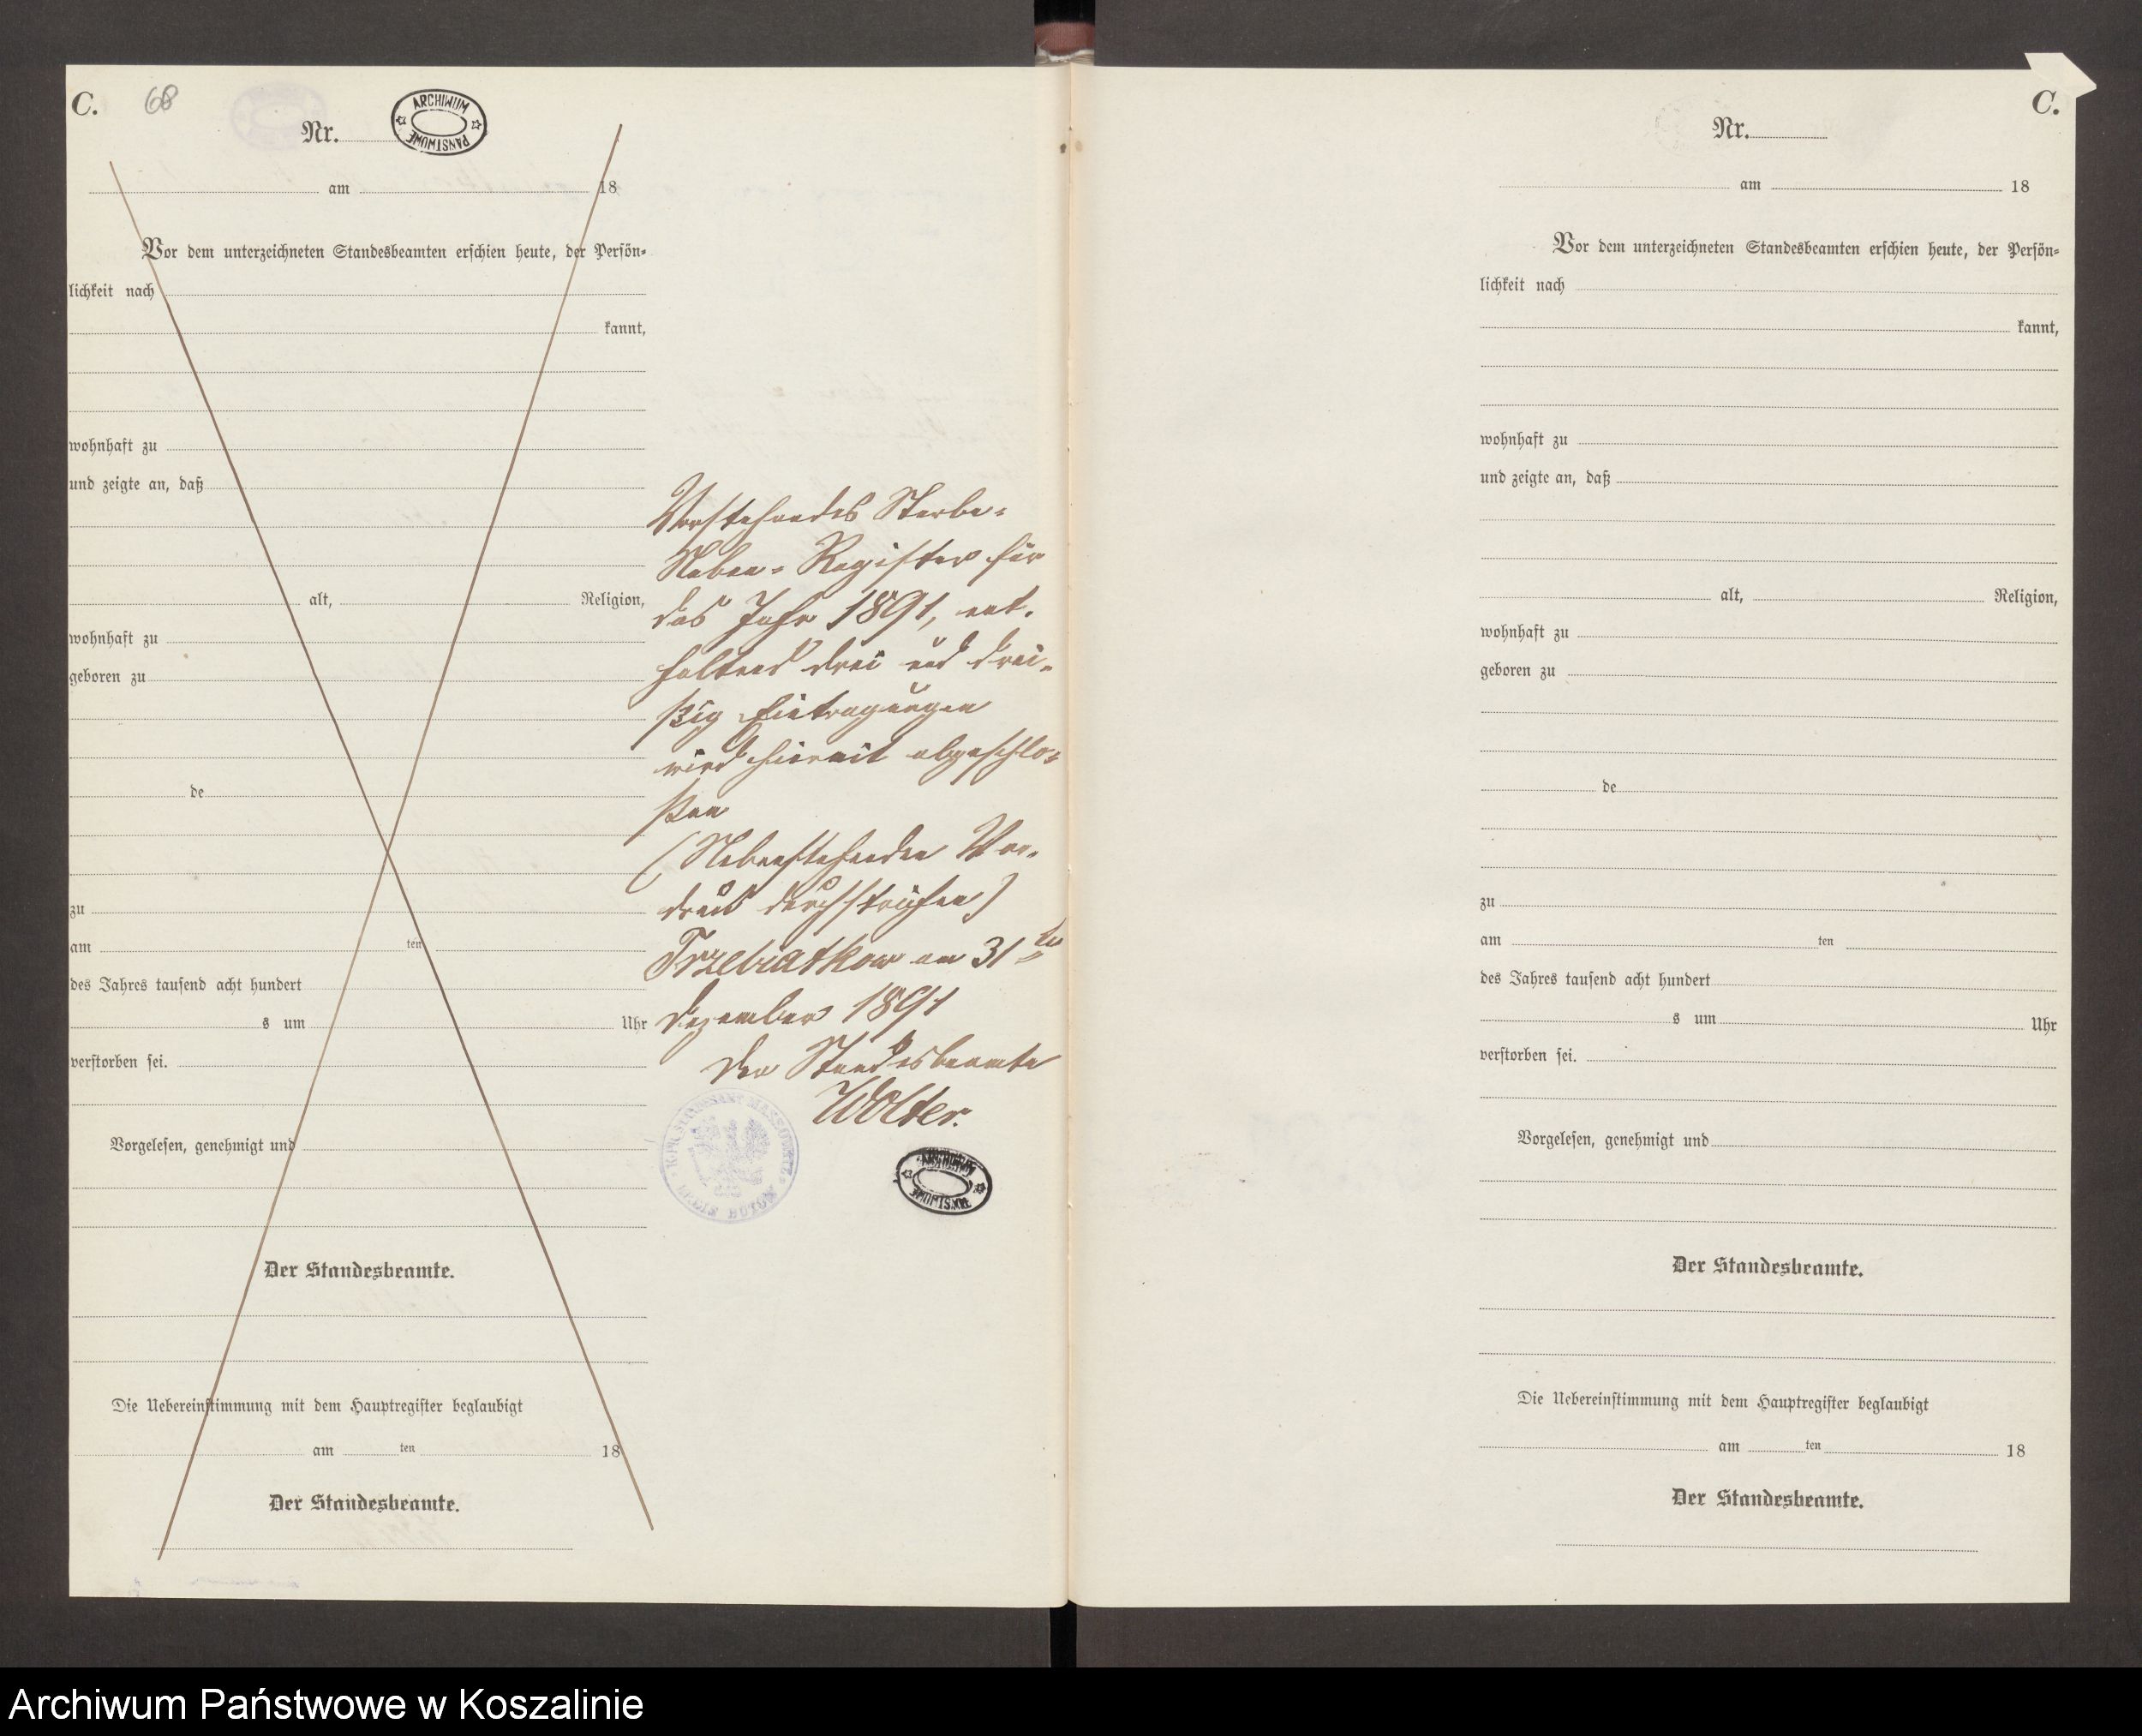 C.
68
ARCHIWUM PAŃSTWOWE
Nr.
am 18
Vor dem unterzeichneten Standesbeamten erschien heute, der Persön-
lichkeit nach
kannt,
wohnhaft zu
und zeigte an, daß
alt, Religion,
wohnhaft zu
geboren zu
de
zu
am ten
des Jahres tausend acht hundert
s um Uhr
verstorben sei.
Vorgelesen, genehmigt und
Der Standesbeamte.
Die Uebereinstimmung mit dem Hauptregister beglaubigt
am ten 18
Der Standesbeamte.
Vorstehendes Sterbe-
Neben-Register für
das Jahr 1891, ent-
haltend drei und drei-
ßig Eintragungen
wird hiermit abgeschlo-
ßen
(Nebenstehenden Vor-
druck durchstrichen)
Trzebiatkow am 31ten
Dezember 1891
Der Standesbeamte
Wolter.
ARCHIWUM PAŃSTWOWE
C.
Nr.
am 18
Vor dem unterzeichneten Standesbeamten erschien heute, der Persön-
lichkeit nach
kannt,
wohnhaft zu
und zeigte an, daß
alt, Religion,
wohnhaft zu
geboren zu
de
zu
am ten
des Jahres tausend acht hundert
s um Uhr
verstorben sei.
Vorgelesen, genehmigt und
Der Standesbeamte.
Die Uebereinstimmung mit dem Hauptregister beglaubigt
am ten 18
Der Standesbeamte.
Archiwum Państwowe w Koszalinie